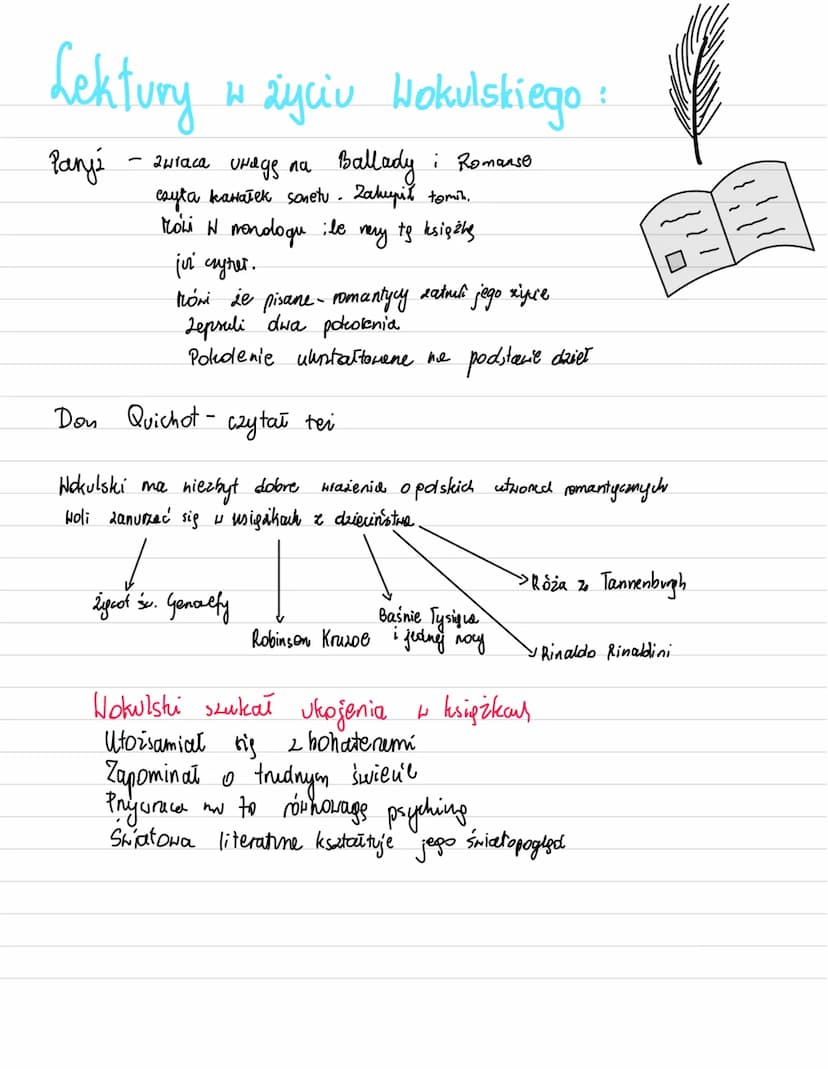 Lektury w życiu Wokulskiego :
Paryż - zwraca uwagę na Ballady i Romanse
czyta kawałek sonetu. Zakupił tomik.
Mówi w monologu ile razy tę książkę
już czytał.
Mówi że pisarze - romantycy zatruli jego życie
Zepsuli dwa pokolenia
Pokolenie ukształtowane na podstawie dzieł
Don Quichot - czytał też
Wokulski ma niezbyt dobre wrażenia o polskich utworach romantycznych
Woli zanurzać się w książkach z dzieciństwa
Róża z Tannenburgh
Żywot św. Genowefy
Baśnie Tysiąca
i jednej nocy
Robinson Kruzoe
Rinaldo Rinaldini
Wokulski szukał ukojenia w książkach
Utożsamiał się z bohaterami
Zapominał o trudnym świecie
Przywraca mu to równowagę psychiną
Światowa literatura kształtuje jego światopogląd